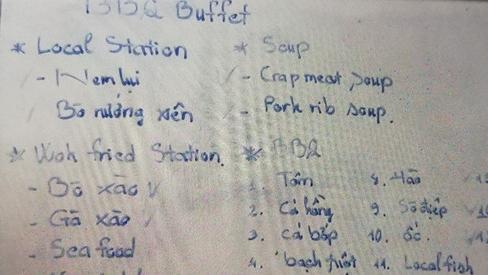 BBQ Buffet
* Local Station
- Nem lụi
Bò nướng xiên
* Woh fried Station.
- Bò xào
- Gà xào
- Sea food
* Soup
- Crap meat soup
- Pork rib soup.
* BBQ
1. Tôm
2. Cá hồng
3. Cá bớp
4. bạch tuột
8. Hào
9. Sò điệp
10. ốc.
11. Local fish